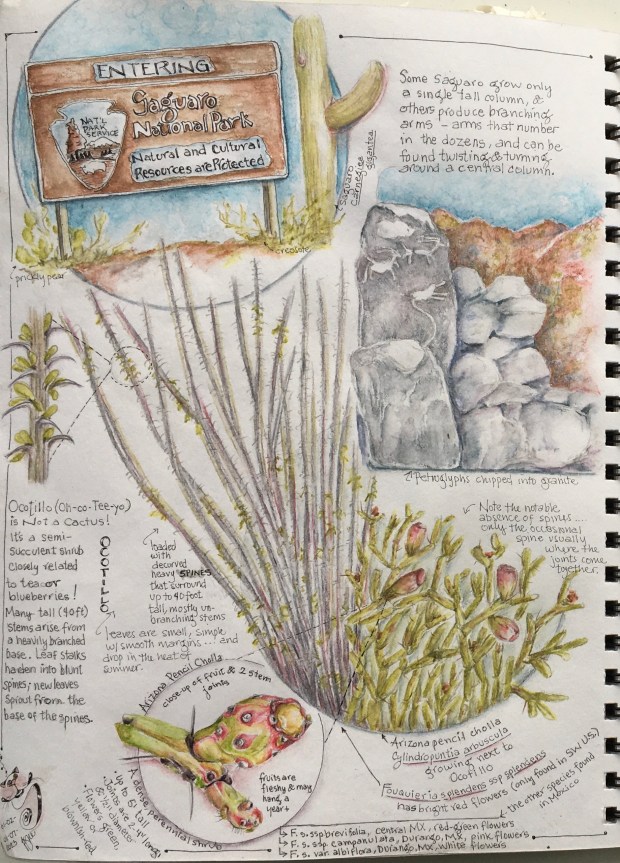 ENTERING
Saguaro
National Park
NAT'L
PARK
SERVICE
Natural and Cultural
Resources are Protected
Saguaro
Carnegiea
gigantea
Some Saguaro grow only
a single tall column, &
others produce branching
arms – arms that number
in the dozens, and can be
found twisting & turning
around a central column.
prickly pear
creosote
Petroglyphs chipped into granite
Ocotillo (Oh-co-Tee-yo)
is Not a Cactus!
It's a semi-
succulent shrub
closely related
to tea or
blueberries!
Many tall (40ft)
stems arise from
a heavily branched
base. Leaf stalks
harden into blunt
spines; new leaves
sprout from the
base of the spines.
OCOTILLO
loaded
with
decurved
heavy SPINES
that surround
up to 40 foot
tall, mostly un-
branching stems
leaves are small, simple
w/ smooth margins... and
drop in the heat of
summer.
Note the notable
absence of spines...
only the occasional
spine usually
where the
joints come
together.
Arizona Pencil Cholla
close-up of fruit & 2 stem
joints
fruits are
fleshy & may
hang a
year+
A dense perennial shrub
Up to 6' tall
Joints are 2-4" long;
Flowers green,
yellow or
Arizona pencil cholla
Cylindropuntia arbuscula
growing next to
Ocotillo
Fouquieria splendens ssp splendens
has bright red flowers (only found in SW U.S.)
the other species found
in Mexico
F. s. ssp brevifolia, central MX, red-green flowers
F. s. ssp campanulata, Durango, MX, pink flowers
F. s. van albiflora, Durango, MX, white flowers